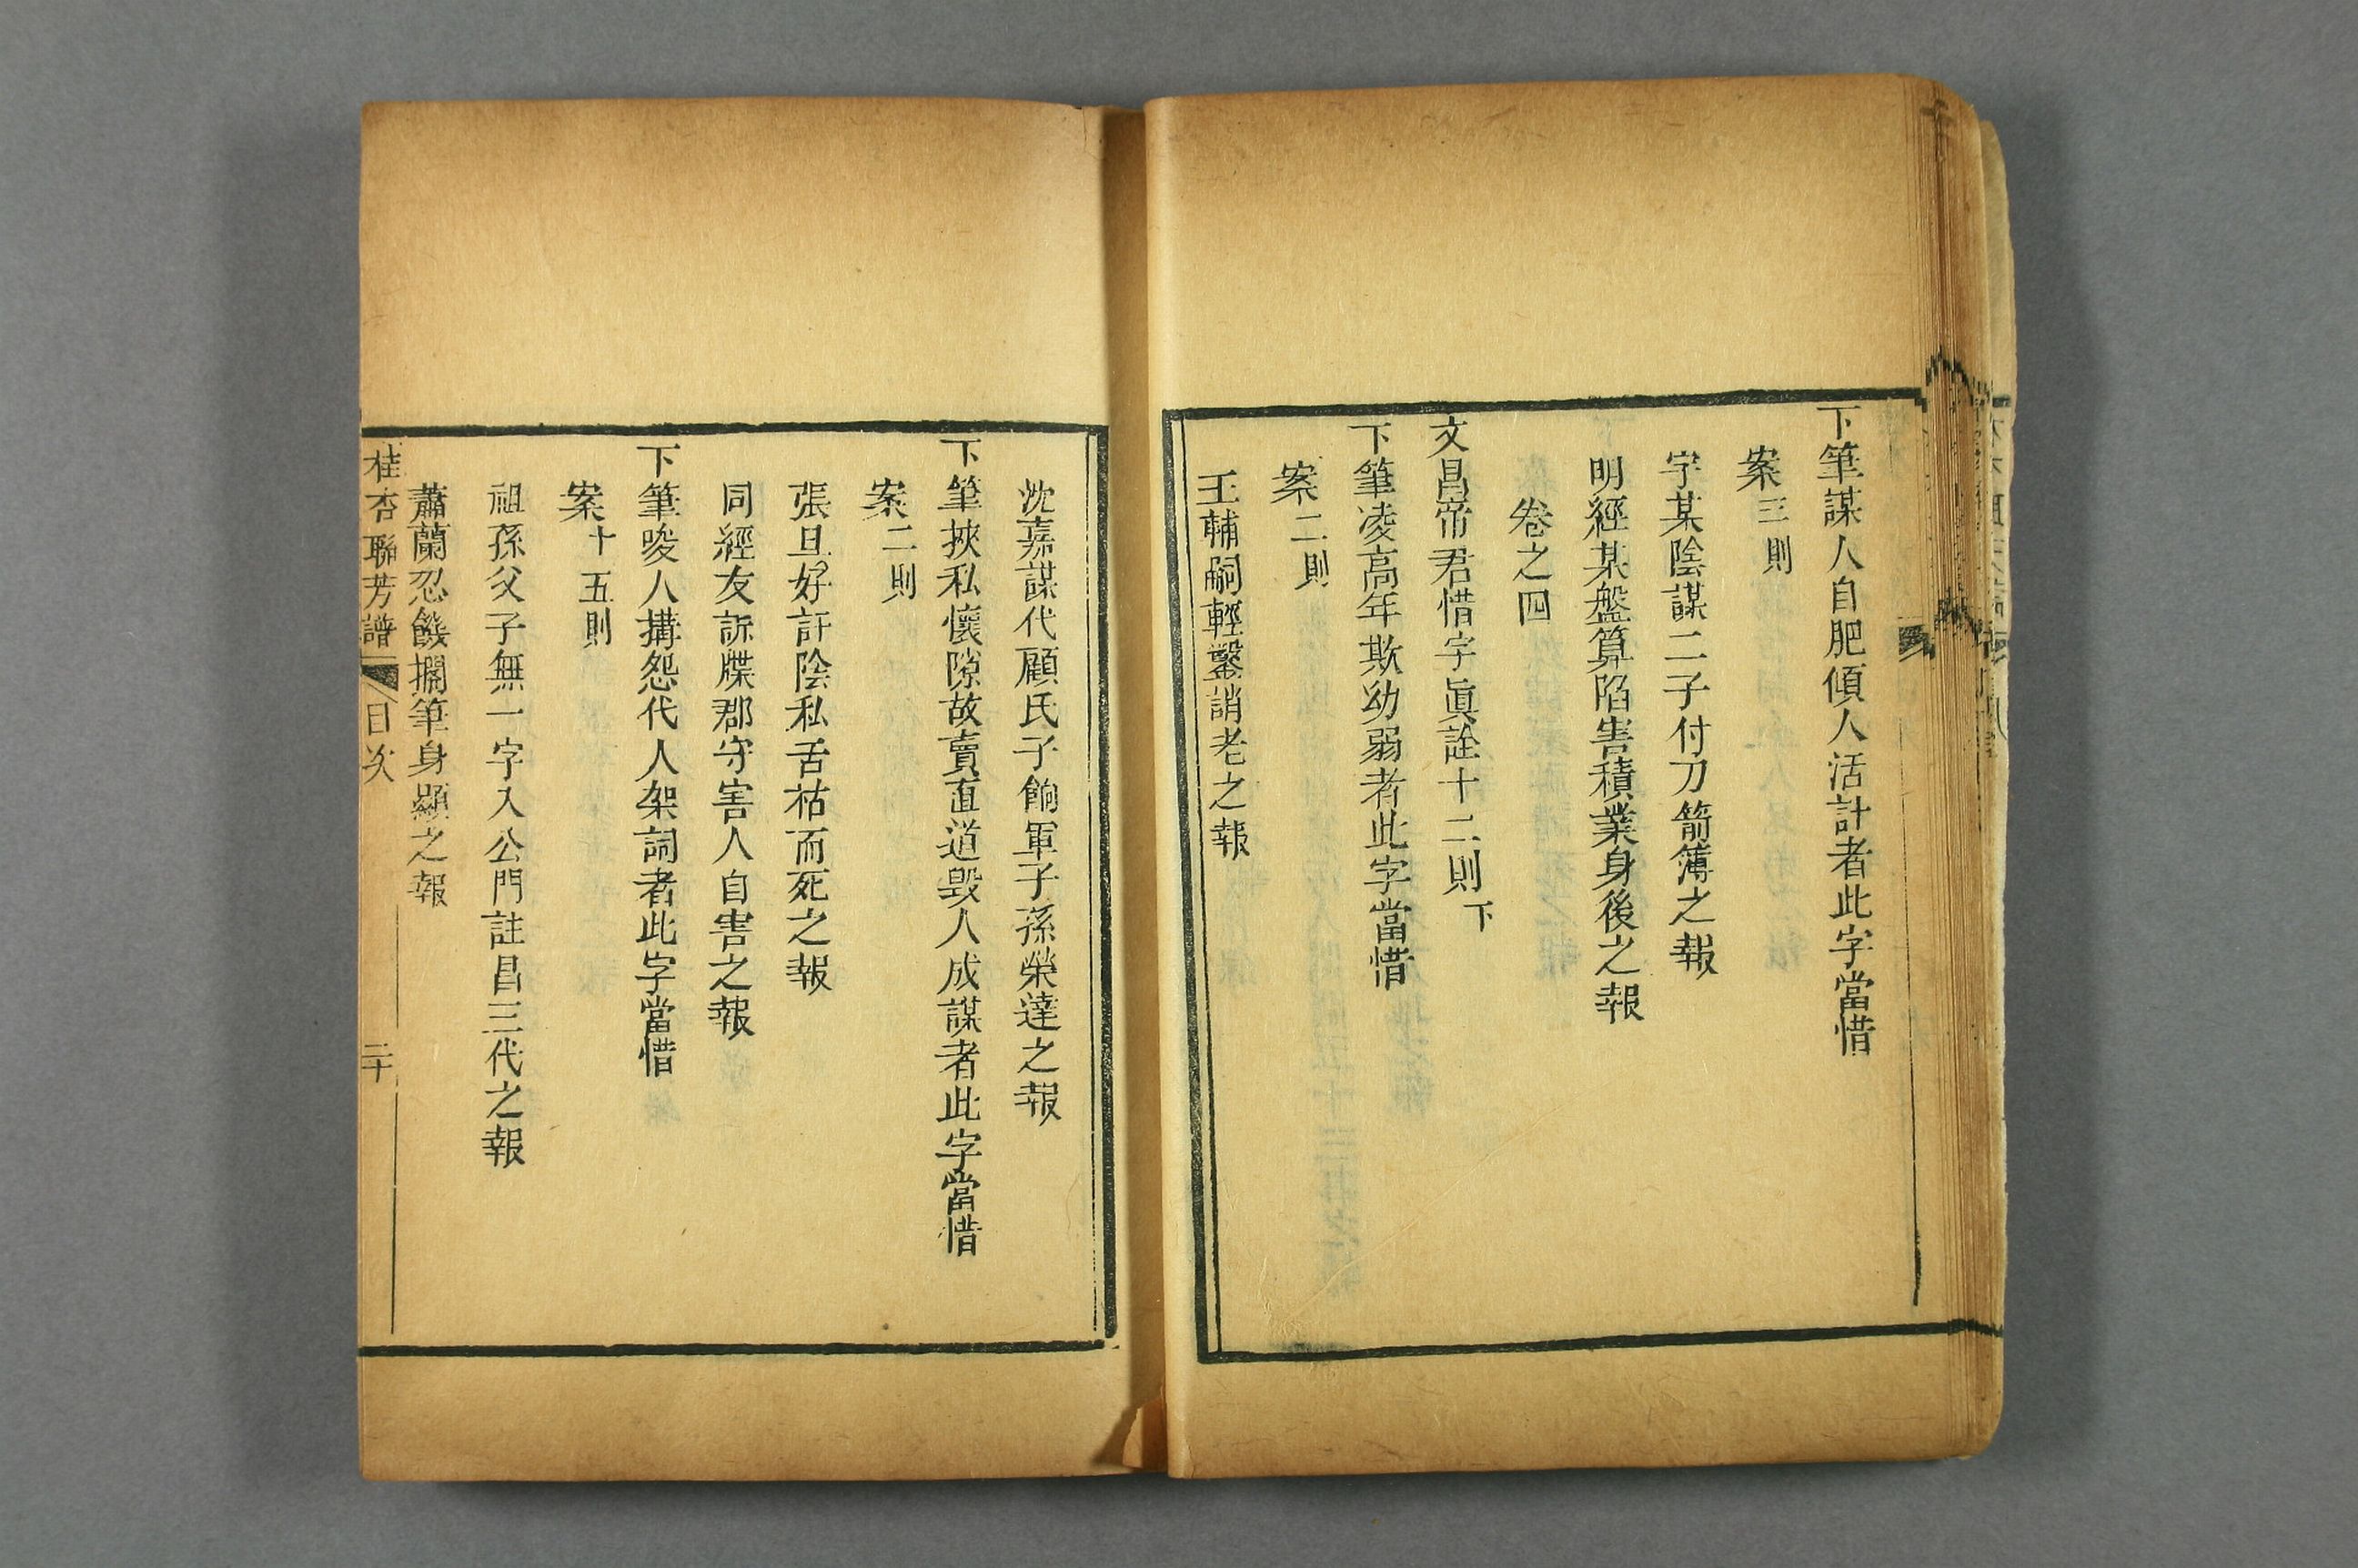 下筆謀人自肥傾人活計者此字當惜
案三則
字某陰謀二子付刀箭簿之報
明經某盤算陷害積業身後之報
卷之四
文昌帝君惜字眞詮十二則下
下筆凌高年欺幼弱者此字當惜
案二則
王輔嗣輕鑿誚老之報
沈嘉謀代顧氏子餉軍子孫榮達之報
下筆挾私懷隙故賣直道毁人成謀者此字當惜
案二則
張旦好訐陰私舌枯而死之報
同經友訴牒郡守害人自害之報
下筆唆人搆怨代人架詞者此字當惜
案十五則
祖孫父子無一字入公門註昌三代之報
蕭蘭忍饑擱筆身顯之報
桂杏聯芳譜 目次 二十